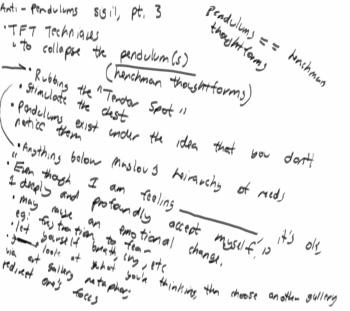 Anti-Pendulums sigil, pt. 3
pendulums == henchman
thoughtforms
• TFT Techniques
↳ to collapse the pendulum(s)
(henchman thoughtforms)
• Rubbing the "Tender Spot"
• Stimulate the chest
• Pendulums exist under the idea that you don't
notice them
• Anything below Maslow's heirarchy of needs
• "Even though I am feeling ________, it's ok,
I deeply and profoundly accept myself"
• may have an emotional change,
eg: frustration to fear
• let yourself breath, cry, etc
• look at what you're thinking, then choose another gallery
via art gallery metaphor,
redirect one's focus